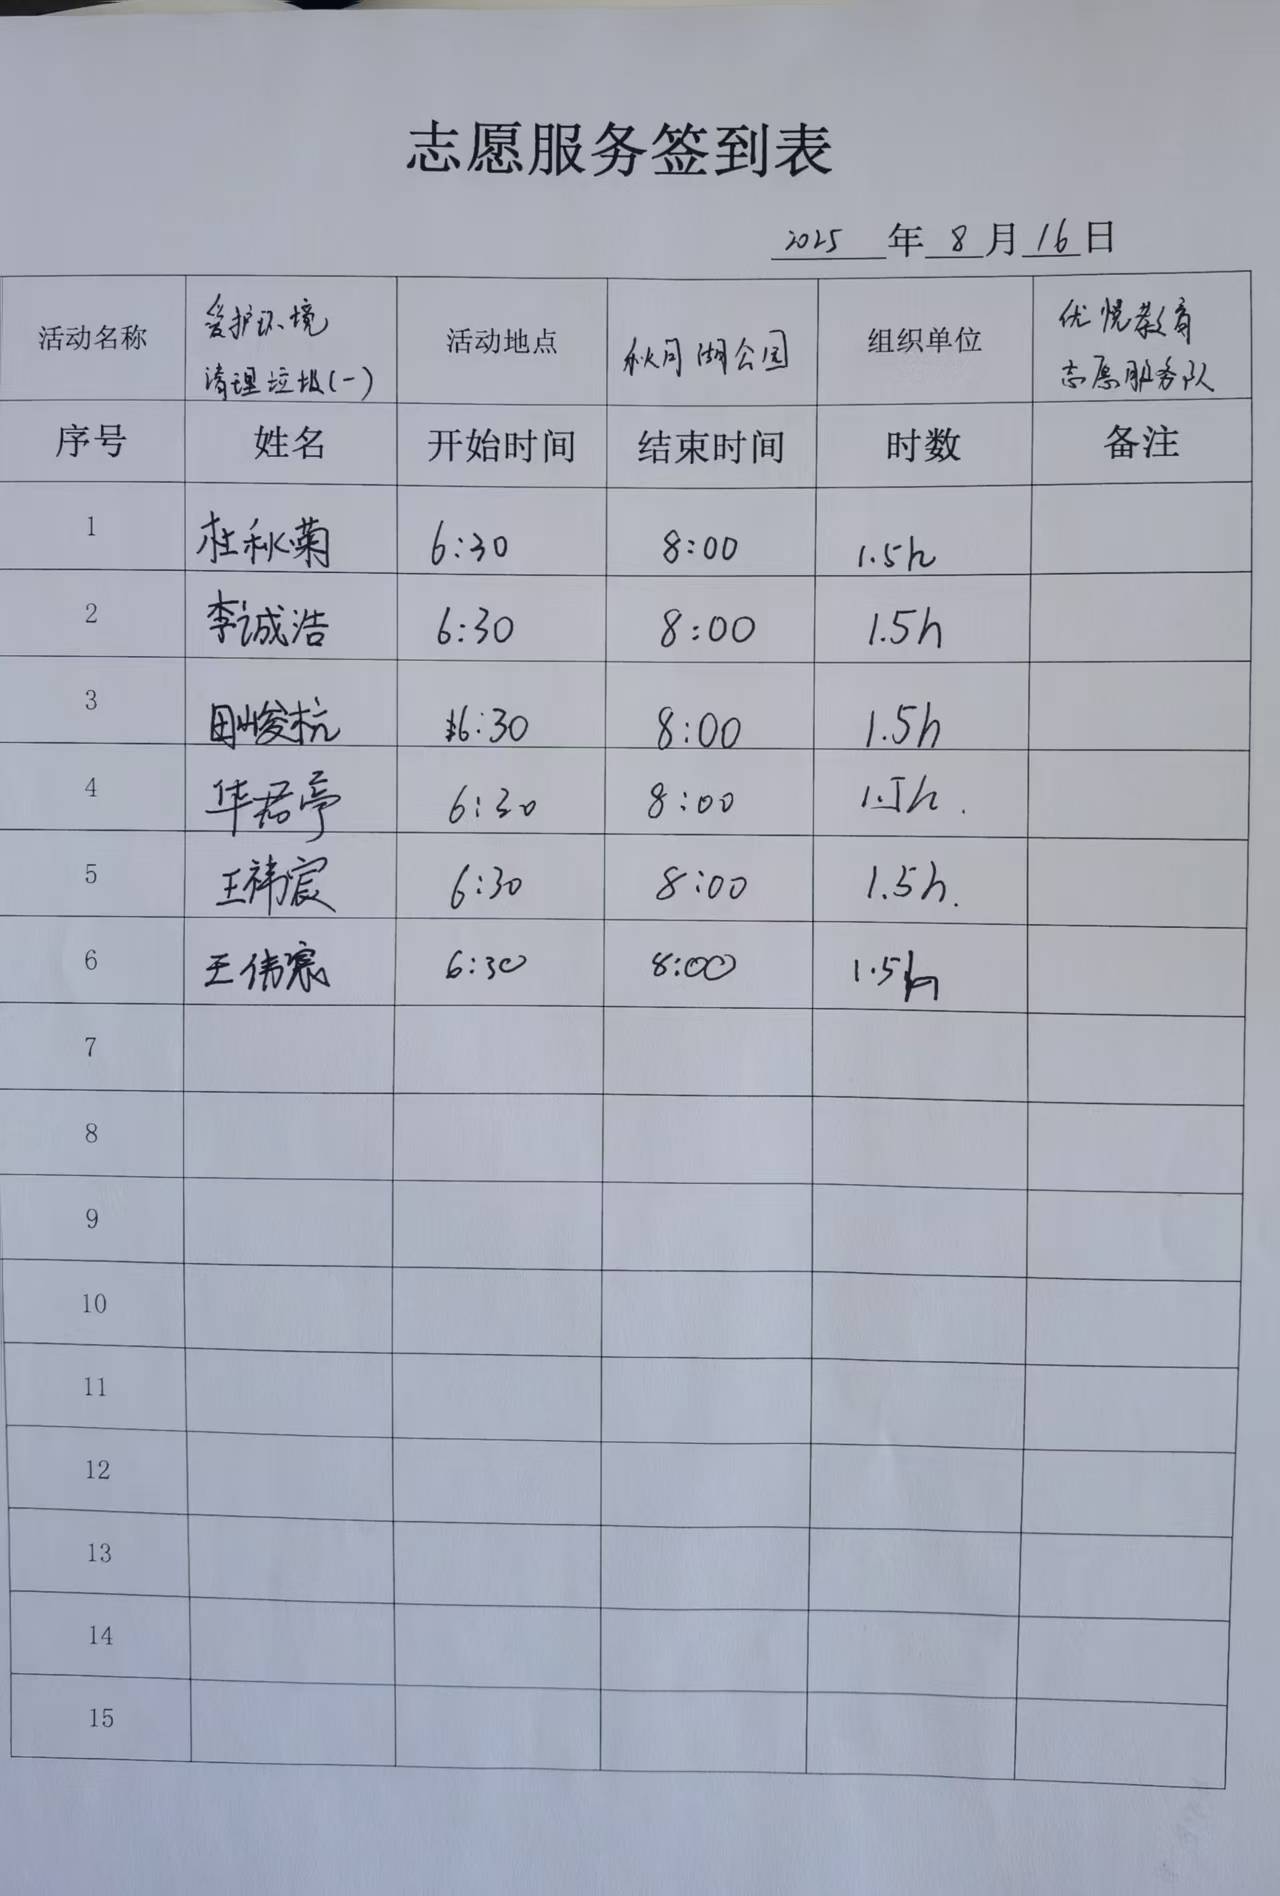 志愿服务签到表
2025 年 8 月 16 日
活动名称 爱护环境 清理垃圾(一) 活动地点 秋月湖公园 组织单位 优悦教育 志愿服务队
序号 姓名 开始时间 结束时间 时数 备注
1 杜秋菊 6:30 8:00 1.5h
2 李诚浩 6:30 8:00 1.5h
3 田峻杭 6:30 8:00 1.5h
4 华君亭 6:30 8:00 1.5h.
5 王祎宸 6:30 8:00 1.5h.
6 王伟 6:30 8:00 1.5h
7
8
9
10
11
12
13
14
15